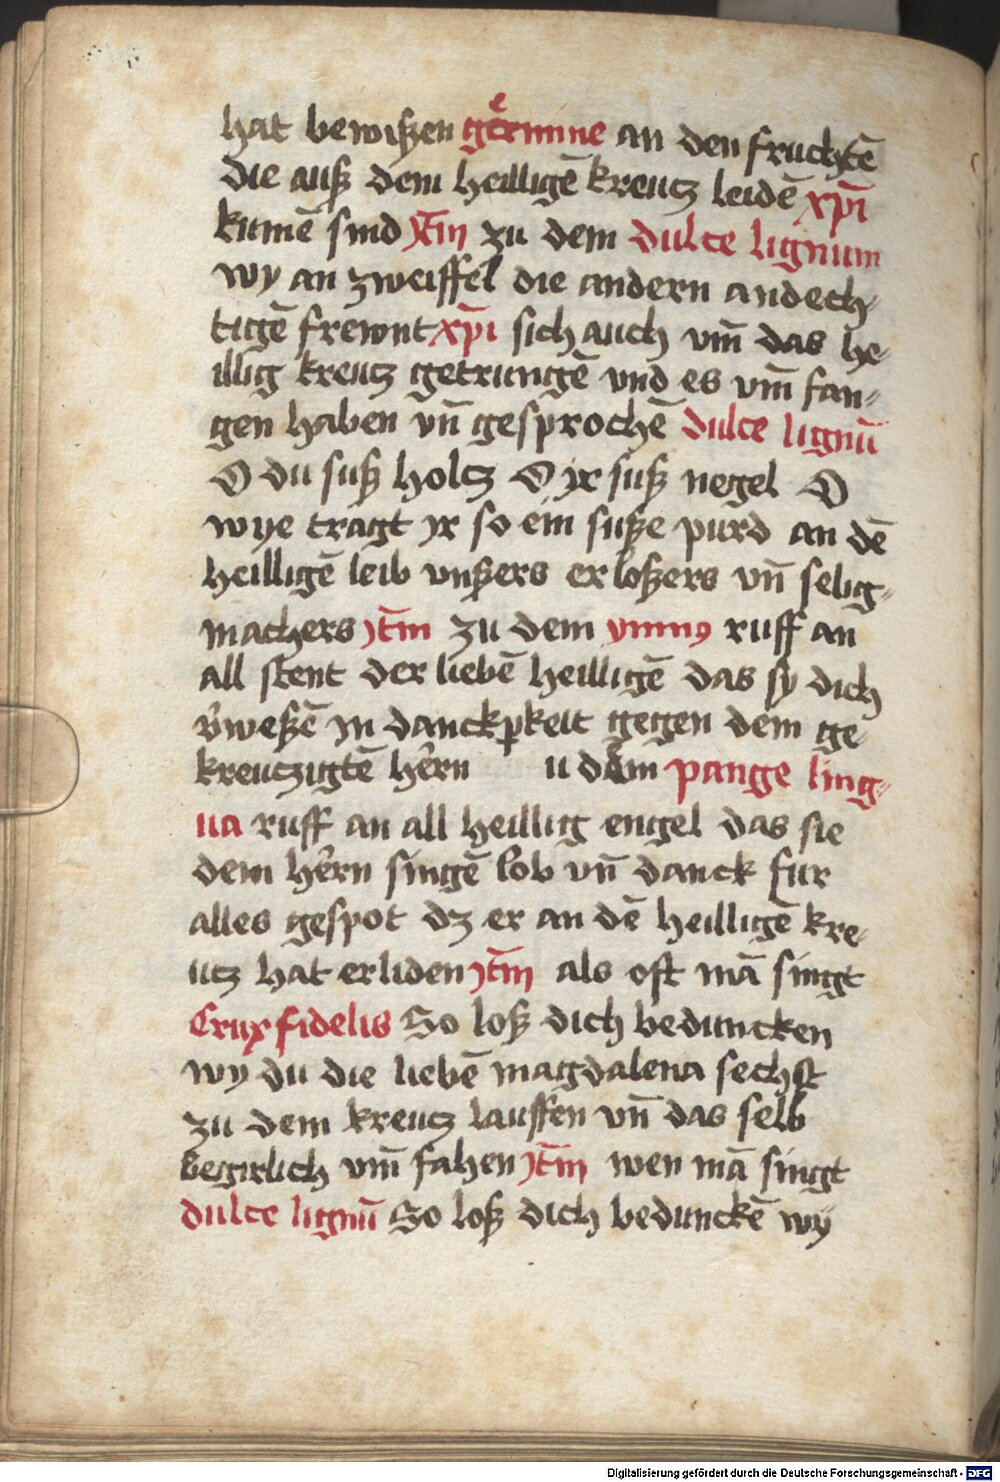 hat bewiszen germine an den fruchtē
die ausz dem heilligē kreutz leidē xp̄i
kumē sind Jt̄m zu dem dulce lignum
wy an zweiffel die andern andech-
tigē frewnt xp̄i sich auch vm̄ das he-
illig kreutz getrungē vnd es vm̄ fan-
gen haben vn̄ gesprochē dulce lignū
O du susz holtz O jr susz negel O
wye tragt yr so ein susze purd an dē
heilligē leib vnszers erloszers vn̄ selig-
machers Jt̄m zu dem ruff an
all stent der liebē heilligē das sy dich
v̓weszē jn danckꝑkeit gegen dem ge
kreutzigtē hern̄ u dem pange ling-
ua ruff an all heillig engel das sie
dem hern̄ singē lob vn̄ danck fur
alles gespot dz er an dē heilligē kre-
utz hat erliden Jt̄m als oft mā singt
Crux fidelis So losz dich beduncken
wy du die liebē magdalena sechst
zu dem kreutz lauffen vn̄ das selb
begirlich vm̄ fahen Jt̄m wen mā singt
dulce lignū So losz dich bedunckē wy
Digitalisierung gefördert durch die Deutsche Forschungsgemeinschaft - DFG